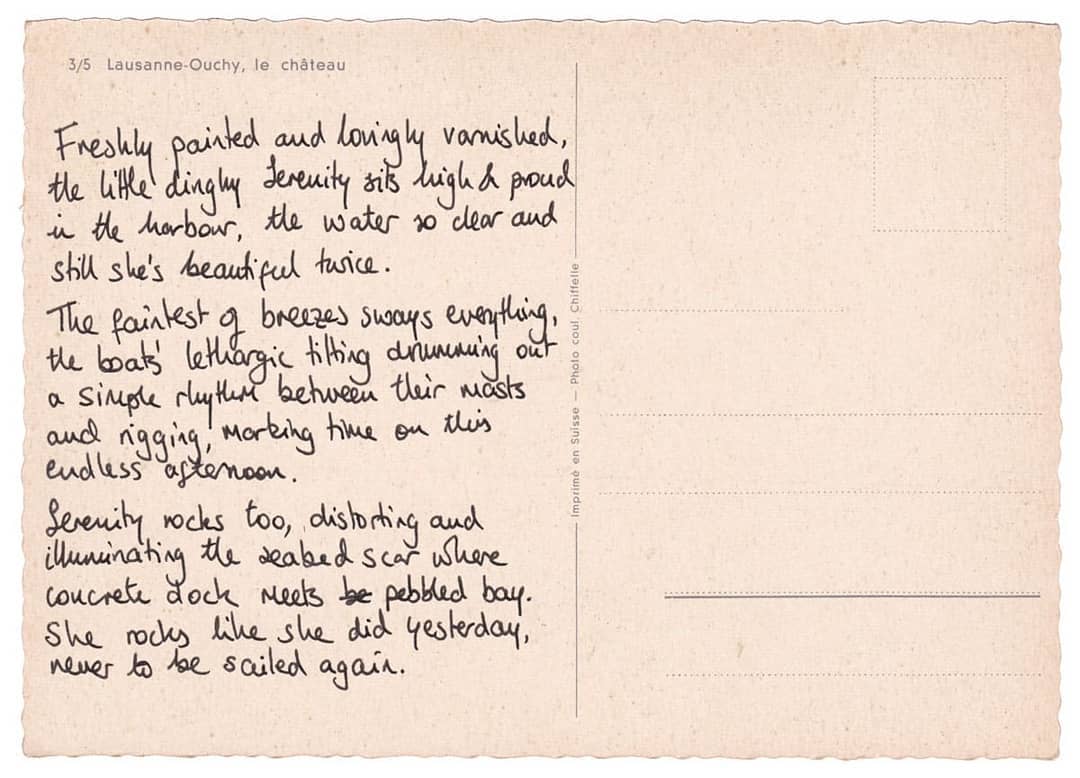 3/5 Lausanne-Ouchy, le château
Freshly painted and lovingly varnished,
the little dinghy Serenity sits high & proud
in the harbour, the water so clear and
still she's beautiful twice.
The faintest of breezes sways everything,
the boats' lethargic tilting drumming out
a simple rhythm between their masts
and rigging, marking time on this
endless afternoon.
Serenity rocks too, distorting and
illuminating the seabed scar where
concrete dock meets be pebbled bay.
She rocks like she did yesterday,
never to be sailed again.
Imprimé en Suisse — Photo coul. Chiffelle